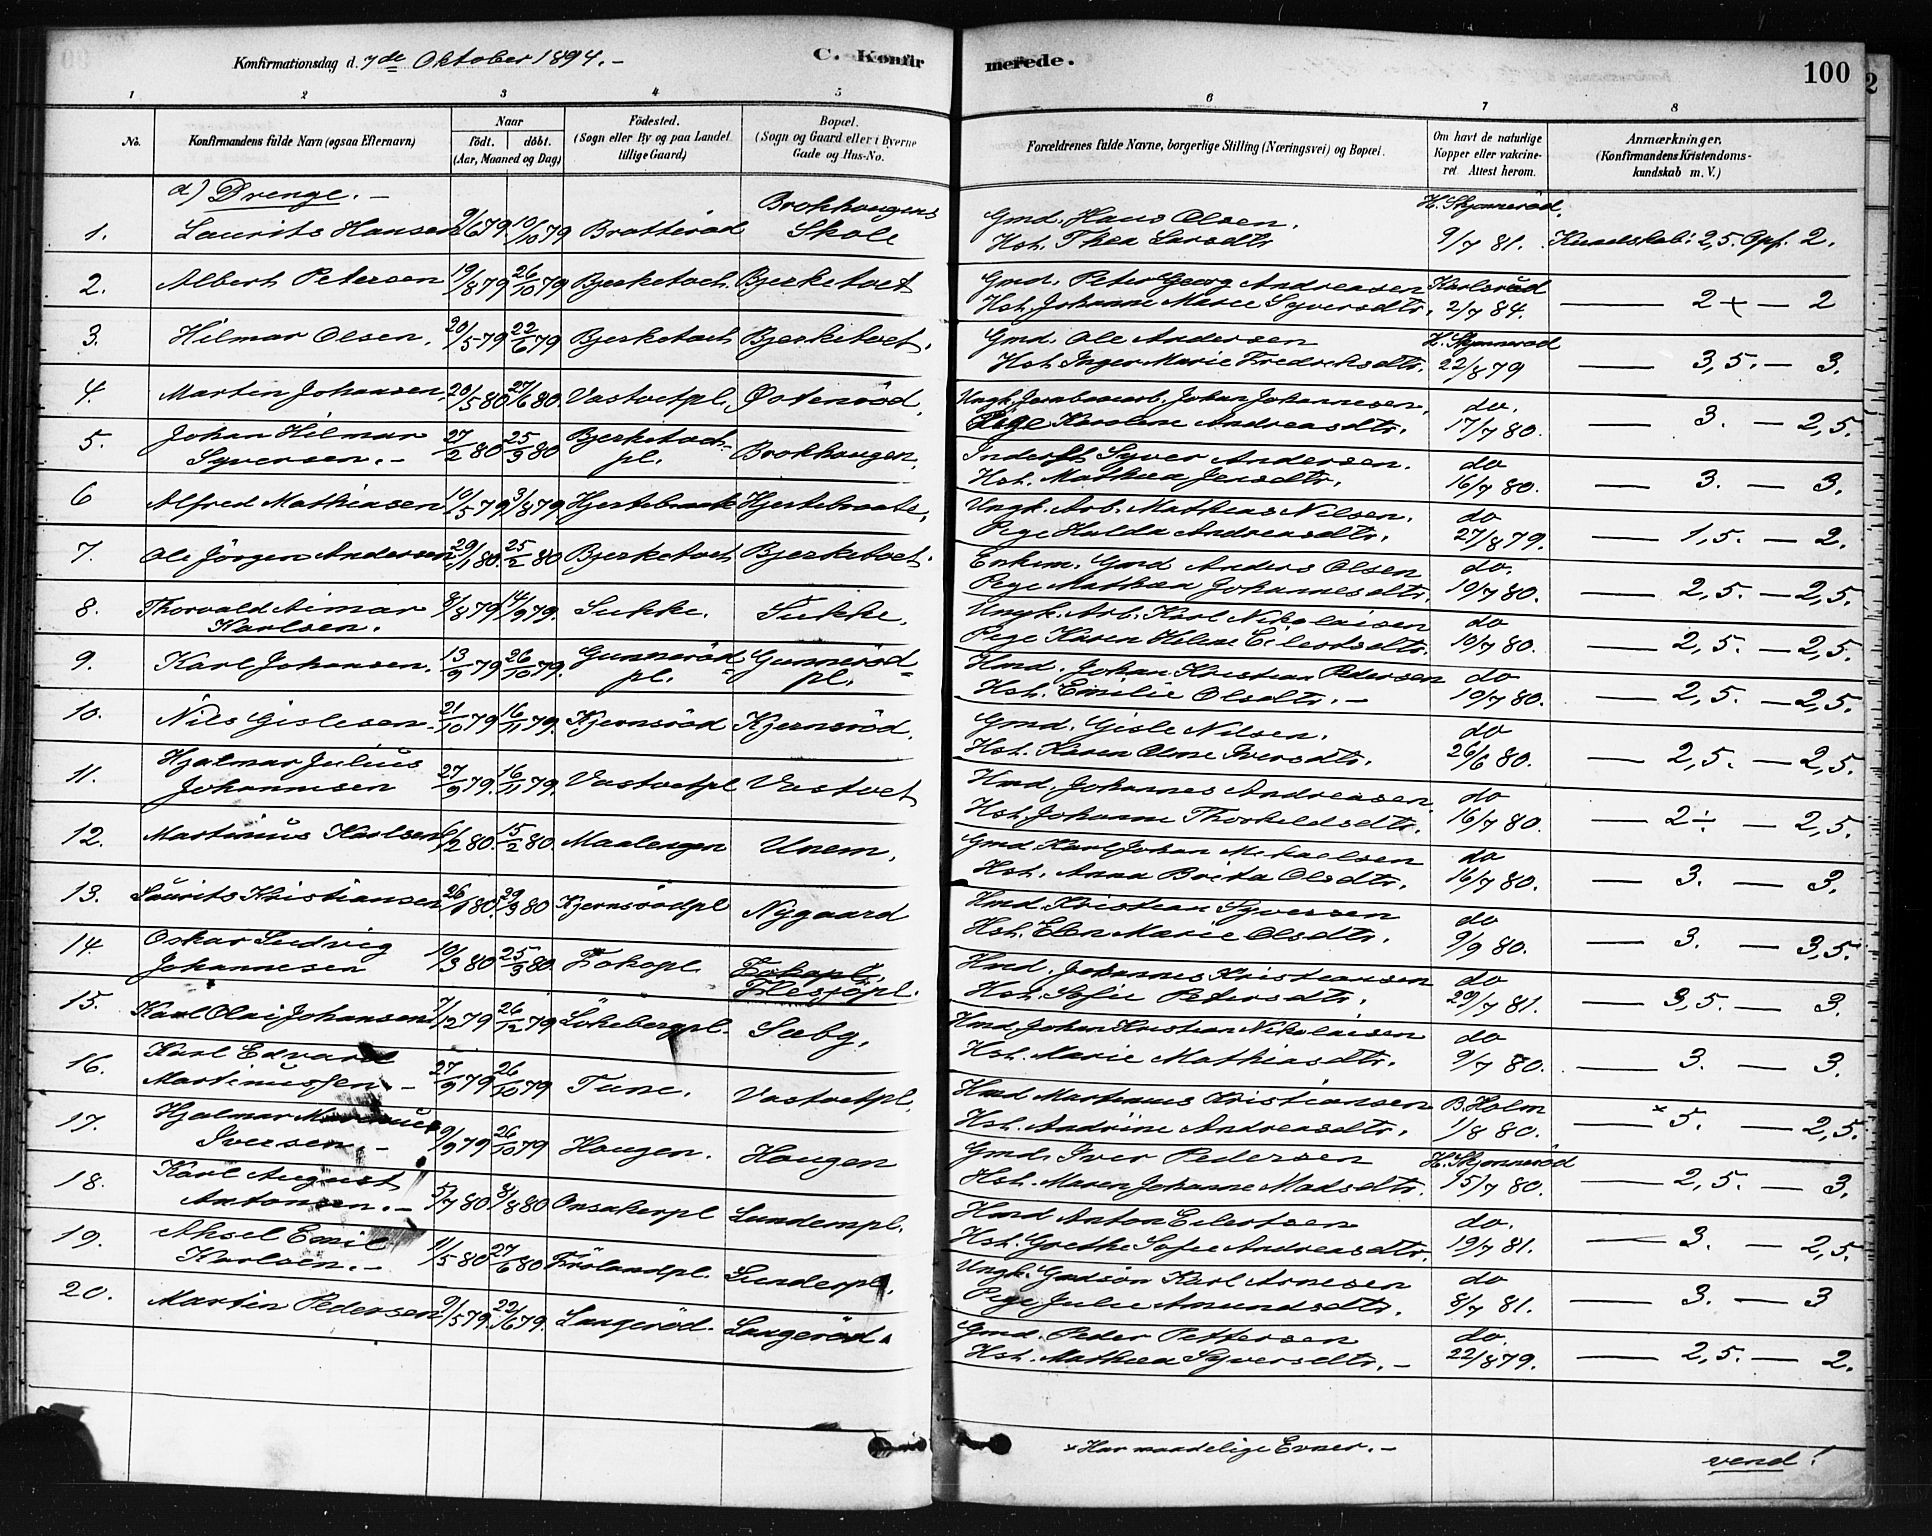 Konfirmationsdag d. 7de Oktober 1894.-
C. Konfirmerede.
100
1 2 3 4 5 6 7 8
No.
Konfirmandens fulde Navn (ogsaa Efternavn)
Naar
födt. döbt.
(Aar, Maaned og Dag)
Födested.
(Sogn eller By og paa Landet
tillige Gaard)
Bopæl.
(Sogn og Gaard eller i Byerne
Gade og Hus-No.
Forældrenes fulde Navne, borgerlige Stilling (Næringsvei) og Bopæl.
Om havt de naturlige
Kopper eller vakcine-
ret Attest herom.
Anmærkninger.
(Konfirmandens Kristendoms-
kundskab m. V.)
a) Drenge.-
1. Laurits Hansen 10/10 79 Bratteröd Brokhougens Skole
Gmd. Hans Olsen.
Hst. Thea Larsdtr
H. Skjonneröd.
9/7 81. Kundskab: 2,5. Opf. 2.
2. Albert Petersen 19/8 79 26/10 79 Bjerketvet Bjerketvet
Gmd. Peter Georg Andreasen
Hst. Johanne Marie Syversdtr.
Karlsrud
2/7 84. — 2 + — 2
3. Hilmar Olsen. 20/5 79 22/6 79 Bjerketvet Bjerketvet.
Gmd. Ole Andersen
Hst. Inger Marie Fredriksdtr.
H. Skjonneröd
22/8 79 — 3,5. — 3.
4. Martin Johansen. 20/5 80 27/6 80. Vastvetpl. Östenröd.
Ungk. Jernbanearb. Johan Johannesen.
Pige Karoline Andreasdtr.
do.
17/7 80. — 3. — 2,5.
5. Johan Hilmar
Syversen.- 27/2 80 25/3 80 Bjerketvet-
pl. Brokhougen.
Inderst Syver Andersen.
Hst. Mathea Jensdtr.
do
16/7 80. — 3. — 3.
6 Alfred Mathiasen 10/5 79 3/8 79 Hjertebraate Hjertebraate.
Ungk. Arb. Mathias Nilsen.
Pige Hulda Andreasdtr.
do
27/8 79. — 1,5. — 2.
7. Ole Jörgen Andersen 29/1 80. 25/2 80 Bjerketvet Bjerketvet.
Enkem. Gmd Anders Olsen
Pige Mathea Johannesdtr.
do.
19/7 80. — 2,5. — 2,5.
8. Thorvald Aimar
Karlsen. 8/8 79 14/9 79. Sukke. Sukke.
Ungk. Arb. Karl Nikolaisen
Pige Karen Helene Eilertsdtr.
do
19/7 80. — 2,5. — 2,5.
9. Karl Johansen. 13/9 79 26/10 79. Gunneröd
pl. Gunneröd-
pl.
Hmd. Johan Kristian Pedersen
Hst. Emilie Olsdtr.-
do
19/7 80. — 2,5. — 2,5.
10. Nils Gislesen. 21/10 79 16/11 79. Kjernsröd Kjernsröd.
Gmd. Gisle Nilsen.
Hst. Karen Olene Iversdtr.
do
26/6 80. — 2,5. — 2,5.
11. Hjalmar Julius
Johannesen 27/9 79. 16/11 79. Vastvetpl Vastvet
Hmd. Johannes Andreasen.
Hst. Johanne Thorkildsdtr.
do
16/7 80. — 2 ÷ — 2,5.
12. Martinius Karlsen 15/2 80. Maalengen Unem.
Gmd. Karl Johan Mikaelsen
Hst. Anna Brita Olsdtr.
do
16/7 80. — 3. — 3.
13. Laurits Kristiansen 26/1 80. 29/3 80 Kjernsrödpl Nygaard
Hmd Kristian Syversen
Hst. Elen Marie Olsdtr.
do
9/9 80. — 3. — 3,5.
14. Oskar Ludvig
Johannesen 10/3 80 25/3 80. Fokopl. Fokopl.
Hmd. Johannes Kristiansen
Hst. Sofie Petersdtr.
do
29/7 81. — 3,5. — 3.
15. Karl Olai Johansen 26/12 79 Lökebergpl. Sæby.
Hmd. Johan Kristian Nikolaisen
Hst. Marie Mathiasdtr.
do
9/7 80. — 3. — 3.
16. Karl Edvard
Martinussen.- 27/9 79 26/10 79 Tune. Vastvetpl.
Hmd Martinus Kristiansen
Hst. Andrine Andreasdtr.
B. Holm
1/8 80. — ×5. — 2,5.
17. Hjalmar
Iversen.- 9/9 79 26/10 79 Hougen. Hougen
Gmd. Iver Pedersen
Hst. Maren Johanne Madsdtr.
H. Skjonneröd
15/7 80. — 2,5. — 3.
18. Karl August
Antonsen.- 5/7 80 8/8 80 Onsakerpl Lundempl.
Hmd Anton Eilertsen
Hst. Grethe Sofie Andreasdtr.
do.
19/7 81. — 3. — 2,5.
19. Aksel Emil
Karlsen.- 11/5 80 27/6 80 Frölandpl. Lunderpl.
Ungk. Gaardsön Karl Arnesen
Pige Julie Amundsdtr.
do
8/7 81. — 3. — 3
20. Martin Pedersen 9/5 79 22/6 79. Langeröd. Langeröd.
Gmd. Peder Pettersen
Hst. Mathea Syversdtr.-
do.
22/8 79. — 2,5. — 2.
× Har maadelige Evner.-
vend!